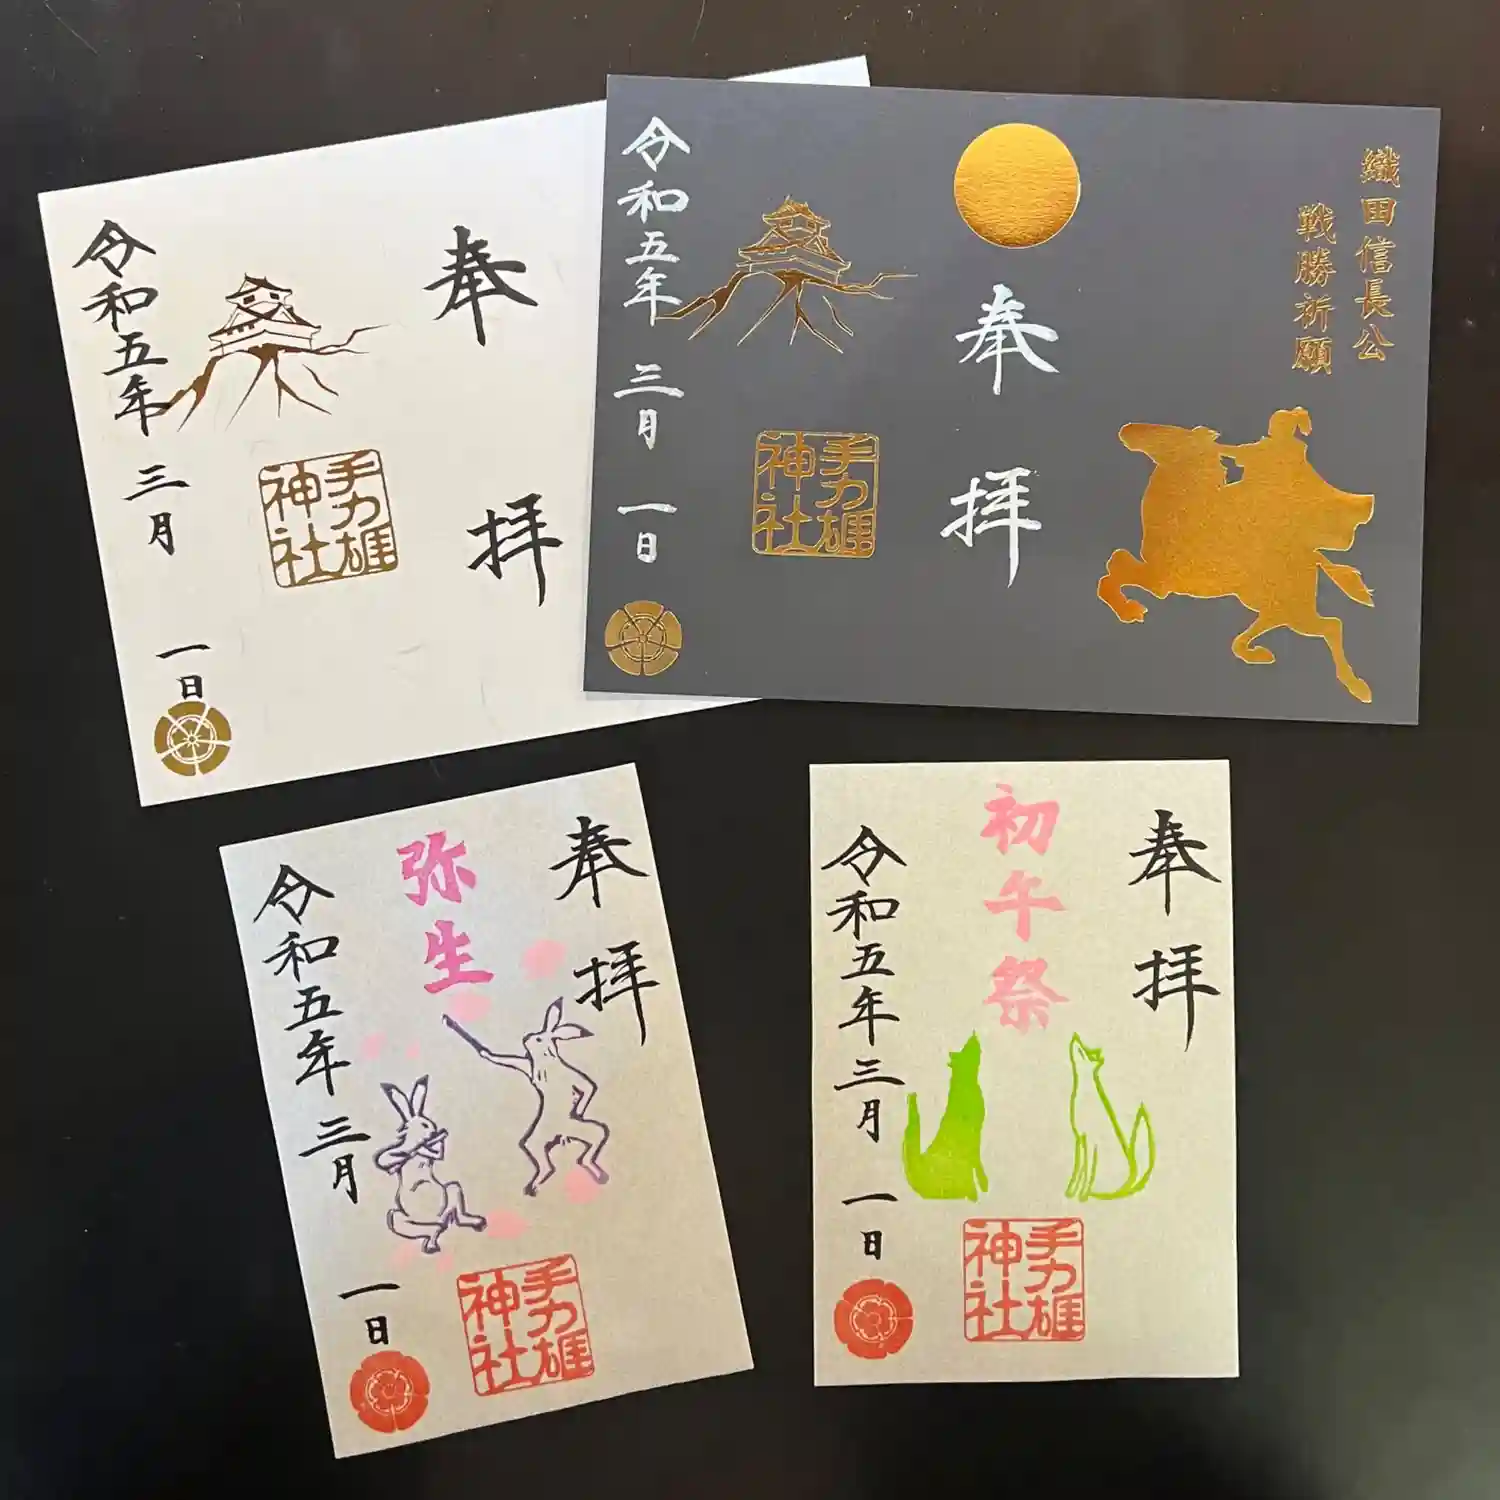 奉拝
手力雄神社
令和五年 三月 一日
織田信長公
戦勝祈願
奉拝
手力雄神社
令和五年 三月 一日
奉拝
弥生
手力雄神社
令和五年 三月 一日
奉拝
初午祭
手力雄神社
令和五年 三月 一日